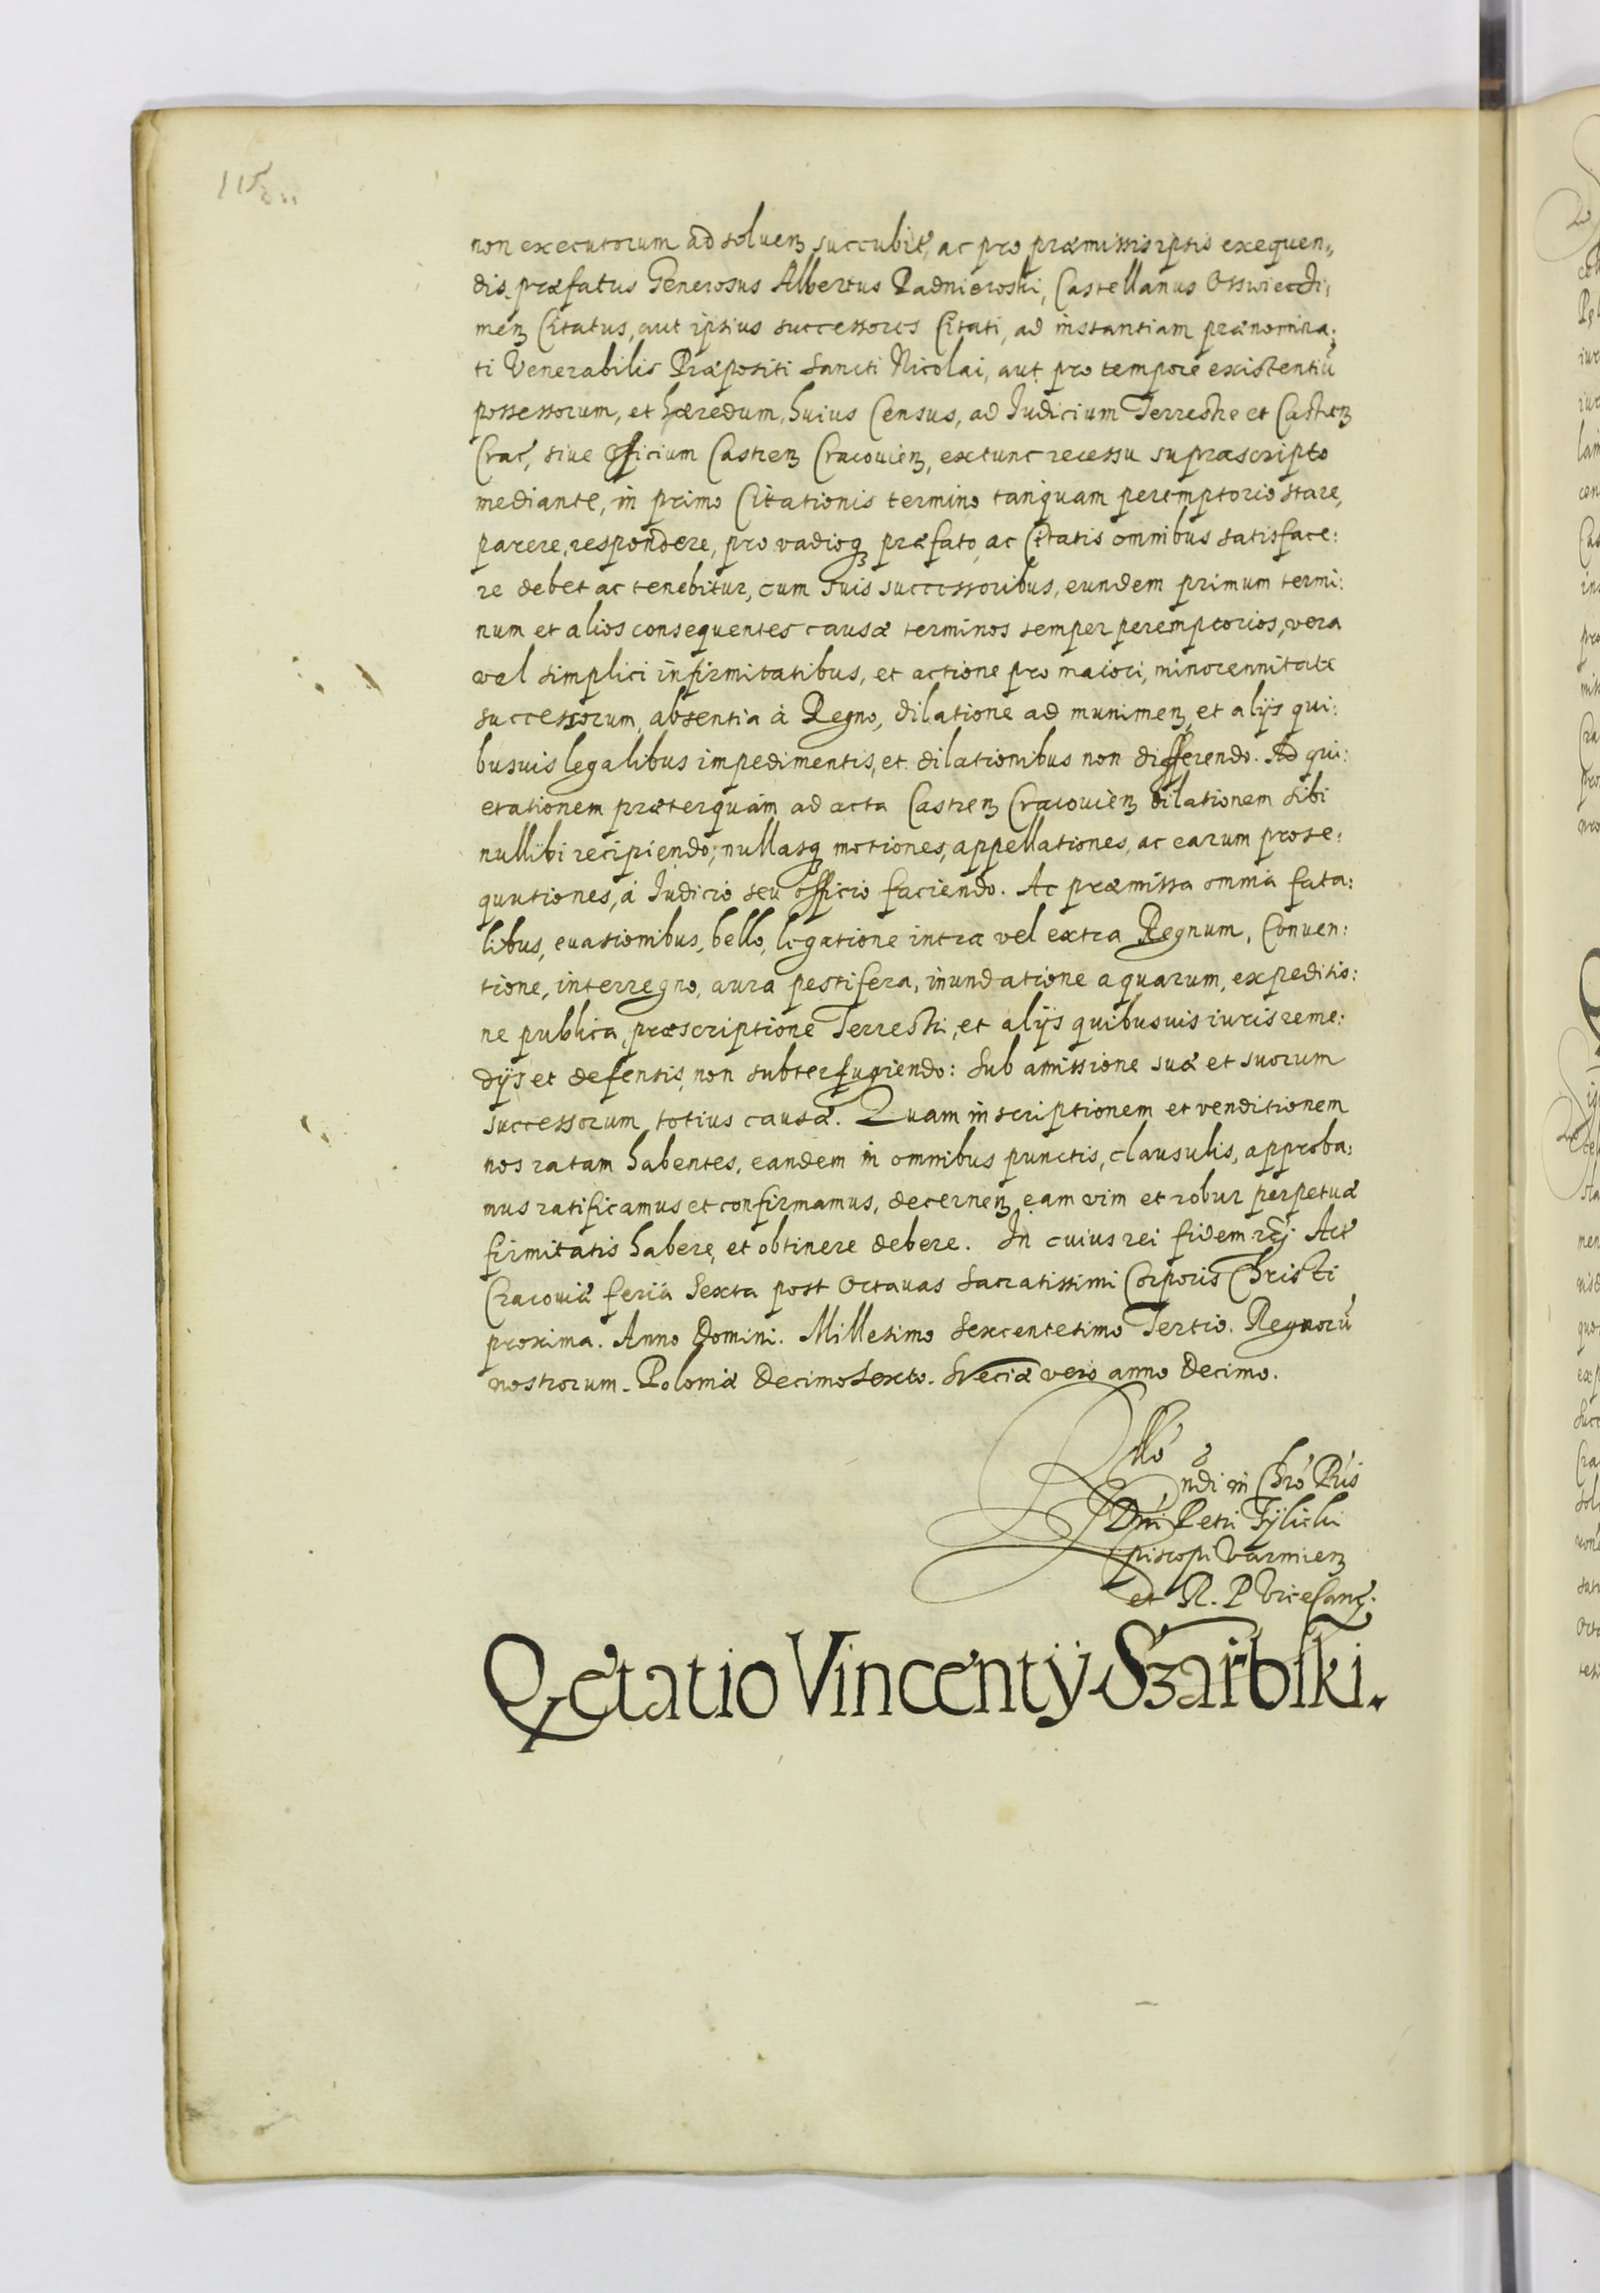 non executorum ad soluen succubit, ac pro præmissis ipsis exequen,
dis, præfatus Generosus Albertus Padnieroski, Castellanus Osswiecdi,
men Citatus, aut ipsius successores Citati, ad instantiam prænomina:
ti Venerabilis Præpositi Sancti Nicolai, aut pro tempore existentiũ
possessorum, et hæredum, huius Census, ad Iudicium Terrestre et Castren
Crac, siue Officium Castren Cracouien, extunc recessu supræscripto
mediante, in primo Citationis termino tanquam peremptorio stare,
parere, respondere, pro vadioq præfato, ac Citatis omnibus satisface:
re debet ac tenebitur, cum suis successoribus, eundem primum termi:
num et alios consequentes causæ terminos semper peremptorios, vera
vel simplici infirmitatibus, et actione pro maiori, minorennitate
successorum, absentia à Regno, dilatione ad munimen, et alijs qui:
busuis legalibus impedimentis, et dilationibus non differendo. Ad qui:
etationem præterquam ad acta Castren Cracouien dilationem sibi
nullibi recipiendo; nullasq motiones, appellationes, ac earum prose:
quutiones, à Iudicio seu officio faciendo. Ac præmissa omnia fata:
libus, euasionibus, bello, legatione intra vel extra Regnum, Conuen:
tione, interregno, aura pestifera, inundatione aquarum, expeditio:
ne publica, præscriptione Terrestri, et alijs quibusuis iuris reme:
dijs et defensis, non subterfugiendo: Sub amissione suæ et suorum
successorum totius causæ. Quam inscriptionem et venditionem
nos ratam habentes, eandem in omnibus punctis, clausulis, approba:
mus ratificamus et confirmamus, decernen eam vim et robur perpetuæ
firmitatis habere, et obtinere debere. In cuius rei fidem rej Act
Cracouiæ feria Sexta post Octauas Sacratissimi Corporis Christi
proxima. Anno Domini. Millesimo Sexcentesimo Tertio. Regnorũ
nostrorum. Poloniæ Decimo Sexto. Sveciæ vero anno Decimo.
ndi in Chro Pris
Dni Petri Tÿlicki
Episcopi Varmien
et R. P Vice Canc.
Qetatio Vincentÿ Szarbski.